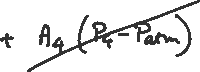 + A₄ (P₄ - Patm)